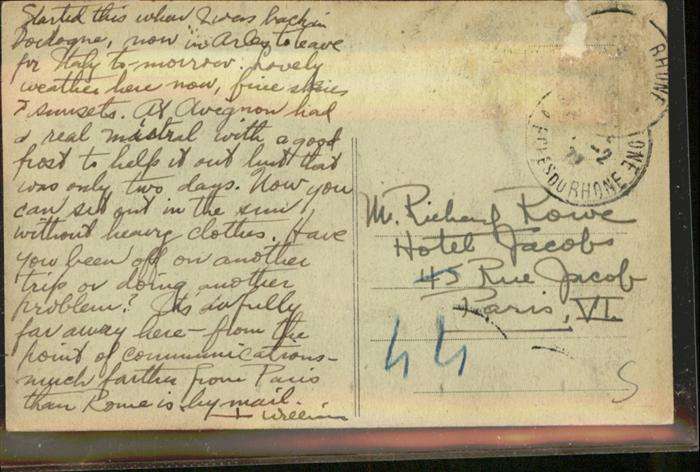 Started this when I was back in
Dordogne, now in Arles to leave
for Italy to-morrow. Lovely
weather here now, fine skies
& sunsets. At Avegnon had
a real mistral with a good
frost to help it out but that
was only two days. Now you
can sit out in the sun
without heavy clothes. Have
you been off on another
trip or doing another
problem? It's awfully
far away here - from the
point of communications -
much farther from Paris
than Rome is by mail.
William
M. Richard Rowe
Hotel Jacobs
45 Rue Jacob
Paris, VI.
44
S
RHONE
DU RHONE